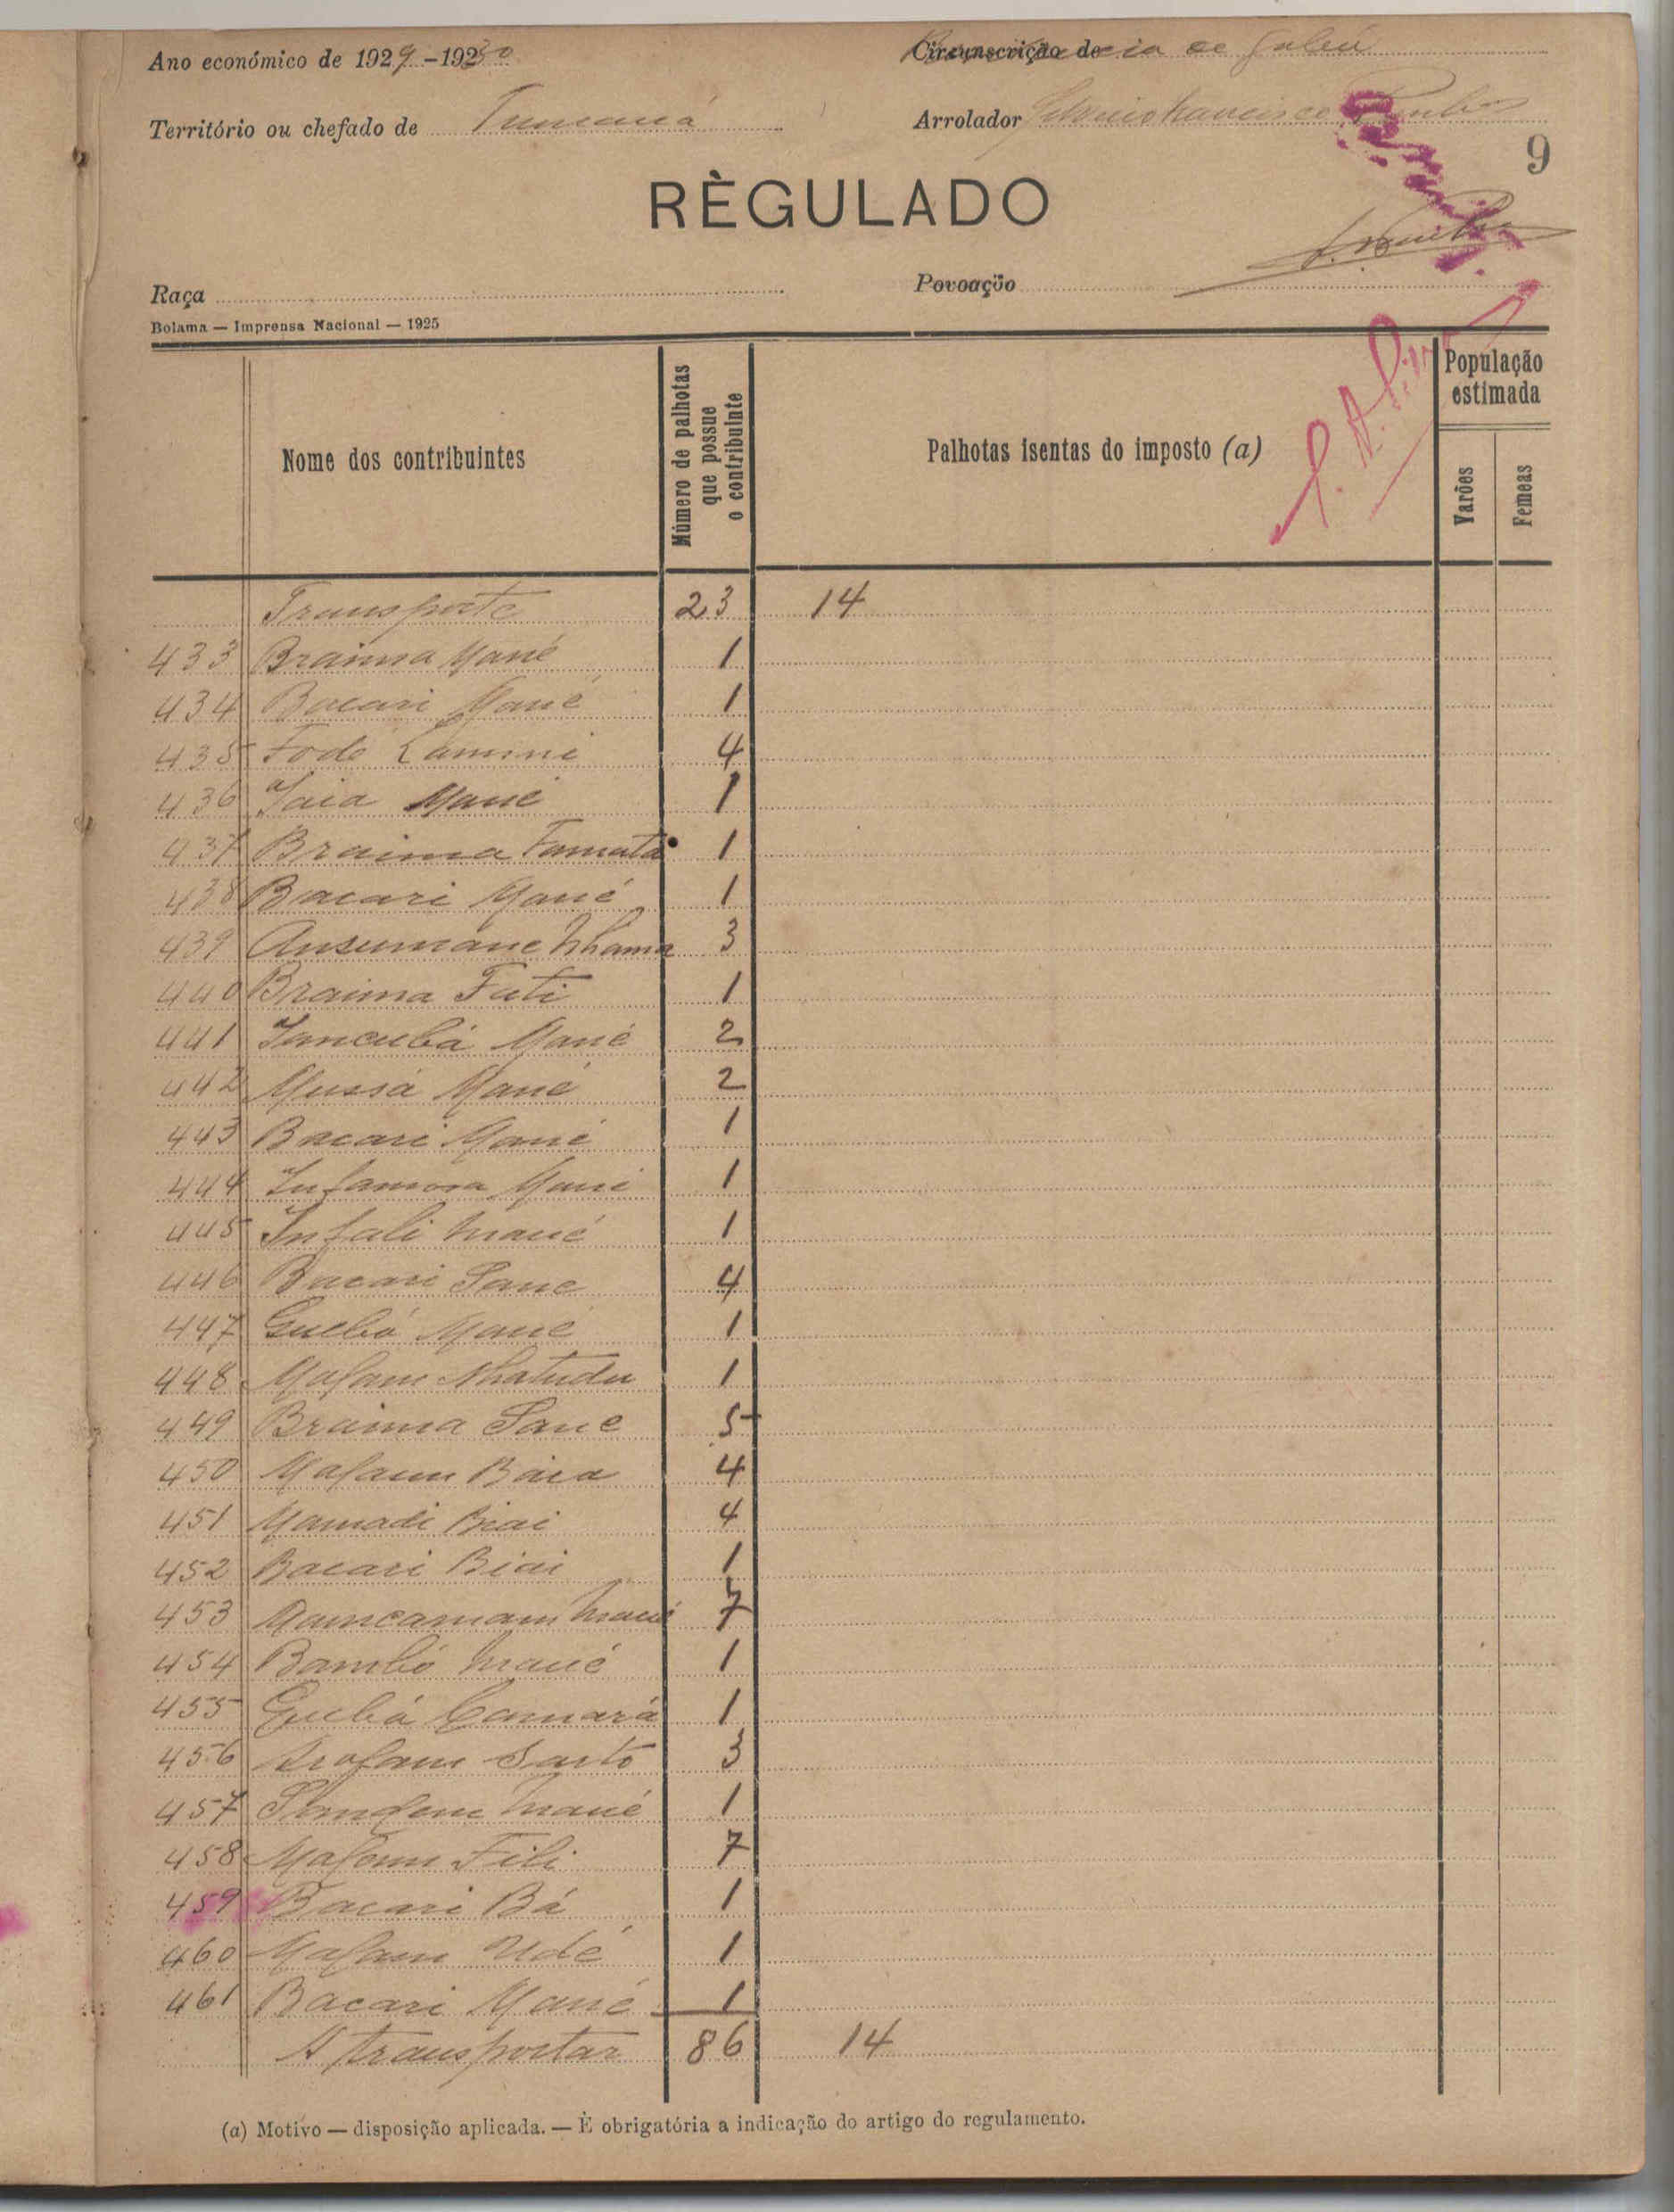 Ano económico de 1929-1930
Circunscrição de
Território ou chefado de Tumaná
Arrolador
9
RÈGULADO
Raça
Povoação
Bolama — Imprensa Nacional — 1925
Nome dos contribuintes
Número de palhotas que possue o contribuinte
Palhotas isentas do imposto (a)
População estimada
Varões
Femeas
Transporte 23 14
433 Braima Mané 1
434 Bacari Mané 1
435 Fodé Lamini 4
436 Jaia Mané 1
437 Braima Famatá 1
438 Bacari Mané 1
439 Ansumane Nhama 3
440 Braima Fati 1
441 Jancubá Mané 2
442 Mussá Mané 2
443 Bacari Mané 1
444 Infamora Mané 1
445 Infali Mané 1
446 Bacari Sane 4
447 Guebá Mané 1
448 Malam 1
449 Braima Sane 5
450 Malam 4
451 Mamadi Biai 4
452 Bacari Biai 1
453 Mané 7
454 Bambó Mané 1
455 Guebá Camará 1
456 3
457 Mané 1
458 Malam Fili 7
459 Bacari Bá 1
460 Malam Udé 1
461 Bacari Mané 1
A transportar 86 14
(a) Motivo — disposição aplicada. — È obrigatória a indicação do artigo do regulamento.